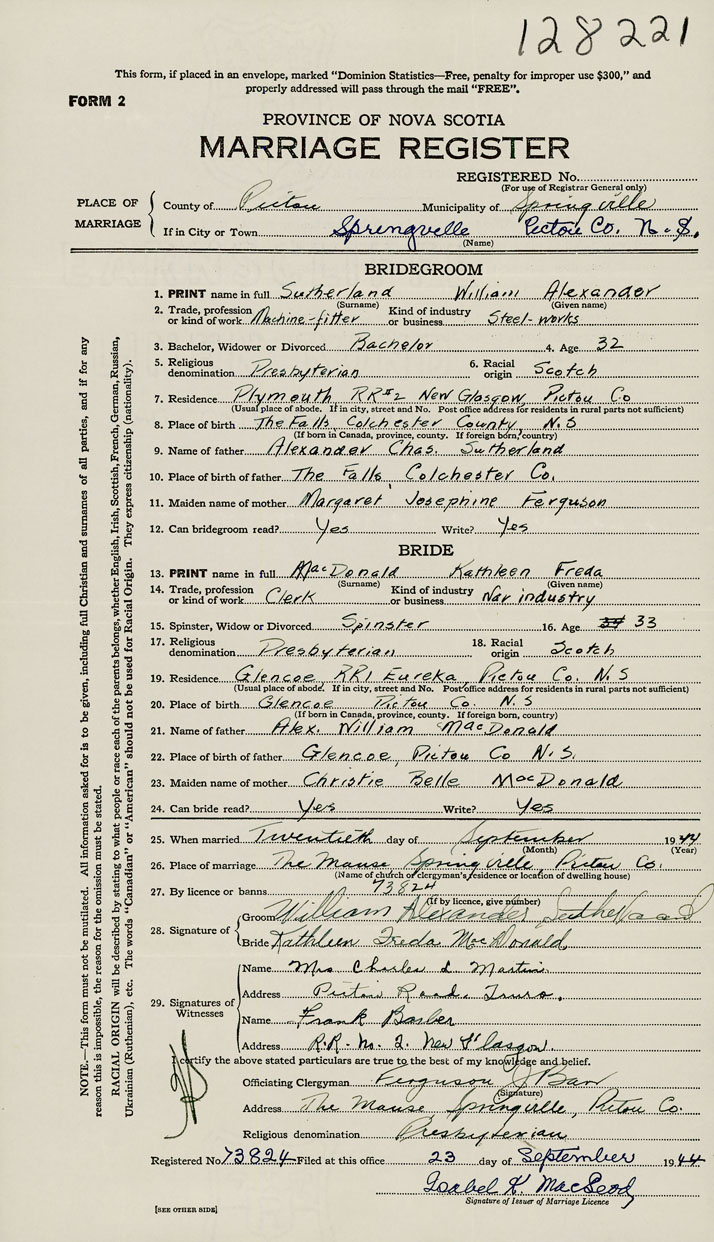 128221
This form, if placed in an envelope, marked "Dominion Statistics—Free, penalty for improper use $300," and
properly addressed will pass through the mail "FREE".
FORM 2
PROVINCE OF NOVA SCOTIA
MARRIAGE REGISTER
REGISTERED No.
(For use of Registrar General only)
PLACE OF MARRIAGE
County of Pictou Municipality of Springville
If in City or Town Springville Pictou Co. N.S.
(Name)
BRIDEGROOM
1. PRINT name in full Sutherland William Alexander
(Surname) (Given name)
2. Trade, profession or kind of work Machine-fitter Kind of industry or business Steel-works
3. Bachelor, Widower or Divorced Bachelor 4. Age 32
5. Religious denomination Presbyterian 6. Racial origin Scotch
7. Residence Plymouth RR#2 New Glasgow, Pictou Co
(Usual place of abode. If in city, street and No. Post office address for residents in rural parts not sufficient)
8. Place of birth The Falls, Colchester County, N.S
(If born in Canada, province, county. If foreign born, country)
9. Name of father Alexander Chas. Sutherland
10. Place of birth of father The Falls, Colchester Co.
11. Maiden name of mother Margaret Josephine Ferguson
12. Can bridegroom read? Yes Write? Yes
BRIDE
13. PRINT name in full MacDonald Kathleen Freda
(Surname) (Given name)
14. Trade, profession or kind of work Clerk Kind of industry or business War industry
15. Spinster, Widow or Divorced Spinster 16. Age 33
17. Religious denomination Presbyterian 18. Racial origin Scotch
19. Residence Glencoe, RR1 Eureka, Pictou Co. N.S
(Usual place of abode. If in city, street and No. Post office address for residents in rural parts not sufficient)
20. Place of birth Glencoe Pictou Co. N.S
(If born in Canada, province, county. If foreign born, country)
21. Name of father Alex. William MacDonald
22. Place of birth of father Glencoe, Pictou Co N.S.
23. Maiden name of mother Christie Belle MacDonald
24. Can bride read? Yes Write? Yes
25. When married Twentieth day of September 1944
(Month) (Year)
26. Place of marriage The Manse, Springville, Pictou Co.
(Name of church or clergyman's residence or location of dwelling house)
27. By licence or banns 73824
(If by licence, give number)
28. Signature of
Groom William Alexander Sutherland
Bride Kathleen Freda MacDonald
29. Signatures of Witnesses
Name Mrs Charles L. Martin
Address Pictou Road, Truro.
Name Frank Barber
Address R.R. No. 2. New Glasgow.
I certify the above stated particulars are true to the best of my knowledge and belief.
Officiating Clergyman Ferguson J Barr
(Signature)
Address The Manse Springville, Pictou Co.
Religious denomination Presbyterian
Registered No. 73824 Filed at this office 23 day of September 1944
Isobel K. MacLeod
Signature of Issuer of Marriage Licence
[SEE OTHER SIDE]
NOTE.—This form must not be mutilated. All information asked for is to be given, including full Christian and surnames of all parties, and if for any
reason this is impossible, the reason for the omission must be stated.
RACIAL ORIGIN will be described by stating to what people or race each of the parents belongs, whether English, Irish, Scottish, French, German, Russian,
Ukrainian (Ruthenian), etc. The words "Canadian" or "American" should not be used for Racial Origin. They express citizenship (nationality).